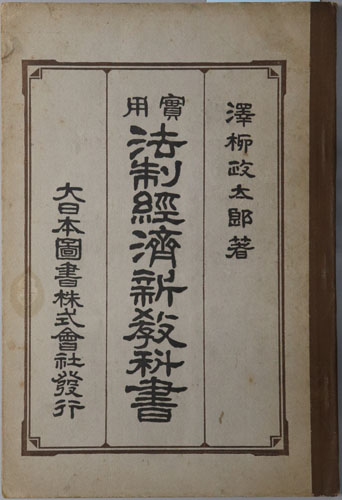 澤柳政太郎著
實用
法制經濟新敎科書
大日本圖書株式會社發行